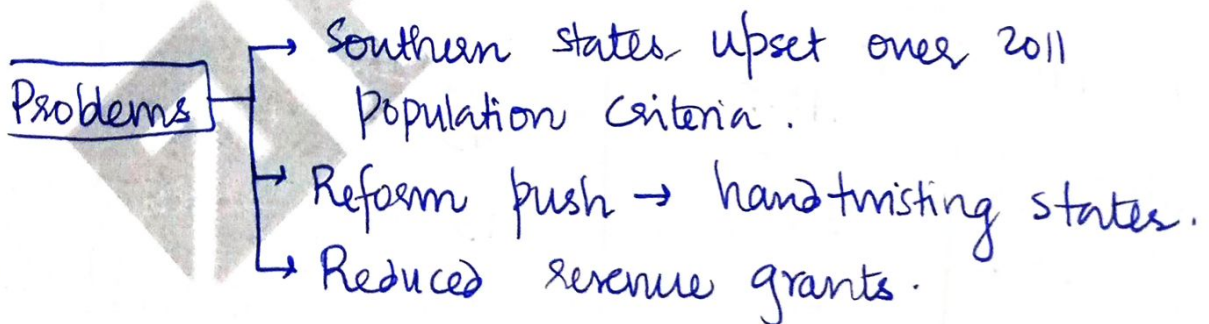 Southern states upset over 2011
Problems
Population Criteria.
Reform push → handtwisting states.
Reduced revenue grants.